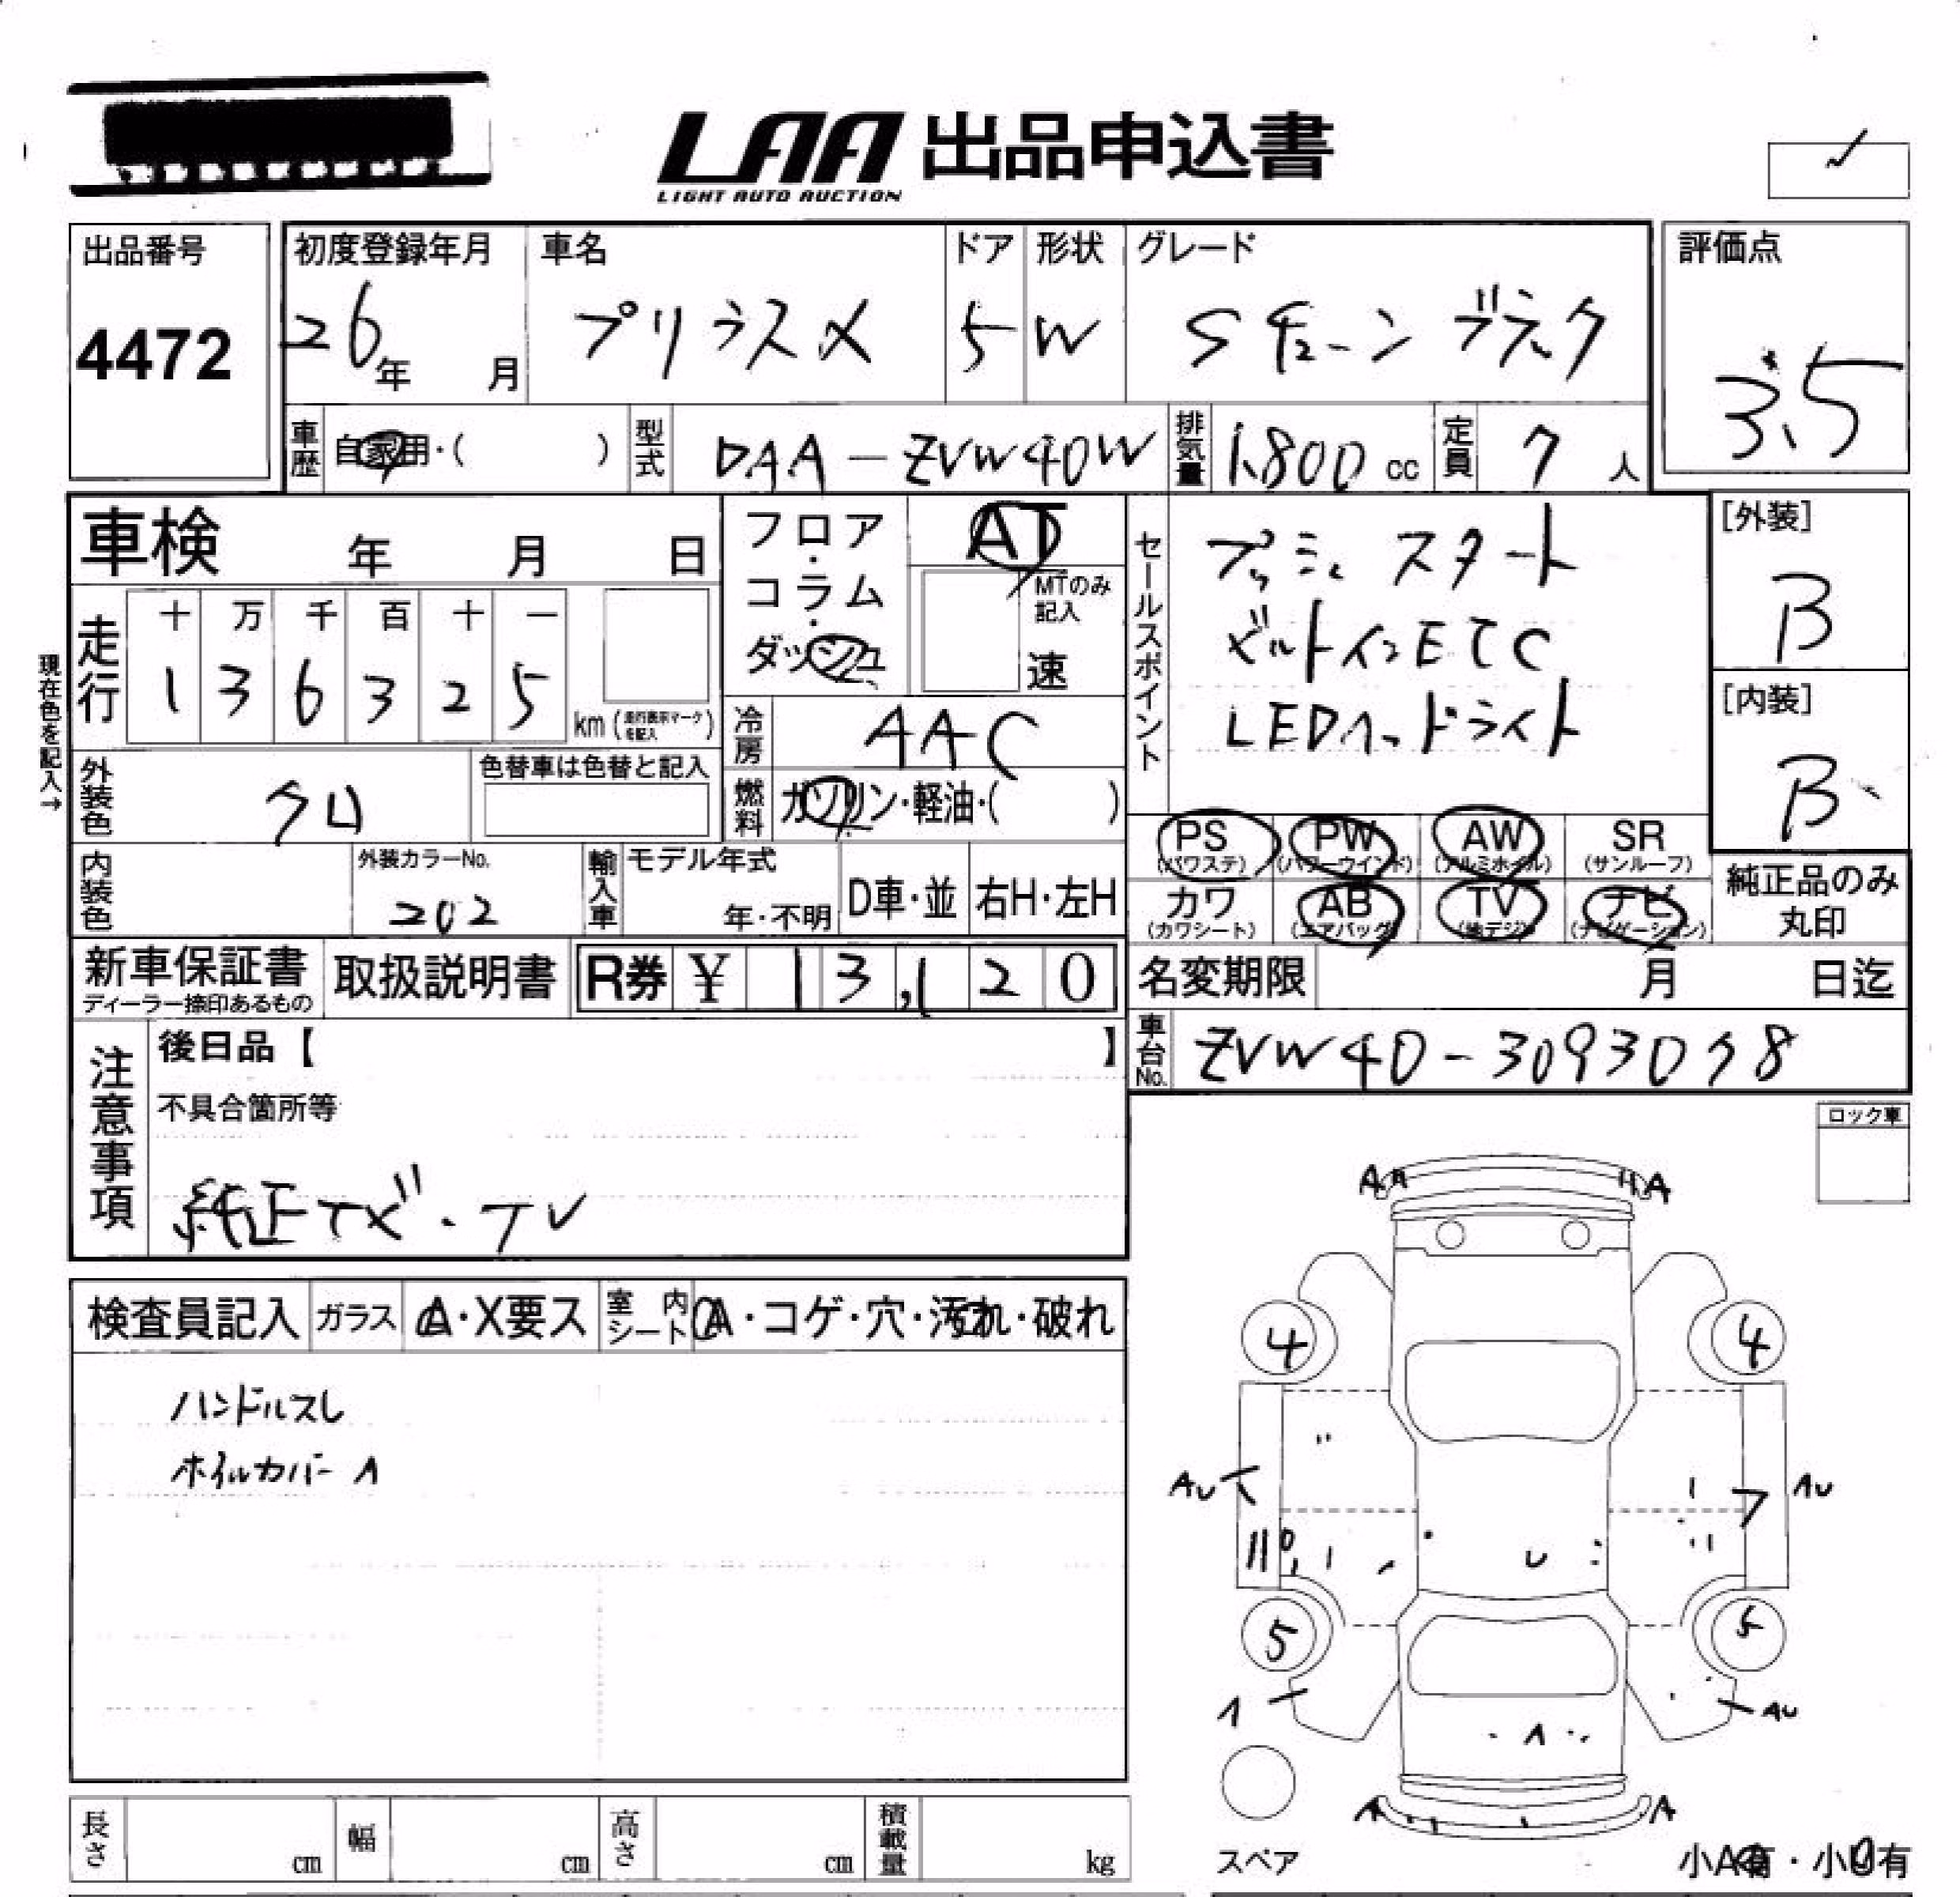 LAA 出品申込書
LIGHT AUTO AUCTION
出品番号
4472
初度登録年月
26年 月
車名
プリウスα
ドア
5
形状
W
グレード
Sチューン ブラック
評価点
3.5
車歴 自家用・( )
型式 DAA-ZVW40W
排気量 1,800 cc
定員 7 人
車検 年 月 日
フロア・コラム・ダッシュ
AT
MTのみ記入
速
セールスポイント
プッシュスタート
ビルトインETC
LEDヘッドライト
[外装]
B
[内装]
B
現在色を記入→
走行
十 万 千 百 十 一
1 3 6 3 2 5
km(走行表示マークを記入)
冷房 AAC
外装色 クロ
色替車は色替と記入
燃料 ガソリン・軽油・( )
PS (パワステ) PW (パワーウインド) AW (アルミホイル) SR (サンルーフ)
カワ (カワシート) AB (エアバッグ) TV (地デジ) ナビ (ナビゲーション)
純正品のみ丸印
内装色
外装カラーNo.
202
輸入車 モデル年式
年・不明
D車・並
右H・左H
新車保証書
ディーラー捺印あるもの
取扱説明書
R券 ¥ 13,120
名変期限 月 日迄
車台No. ZVW40-3093078
注意事項
後日品【 】
不具合箇所等
純正ナビ・TV
ロック車
検査員記入
ガラス A・X要ス
室内シート A・コゲ・穴・汚れ・破れ
ハンドルスレ
ホイルカバー A
A A
4 4
AU AU
U
5 5
A AU
A
A A
スペア
小A有・小U有
長さ cm
幅 cm
高さ cm
積載量 kg